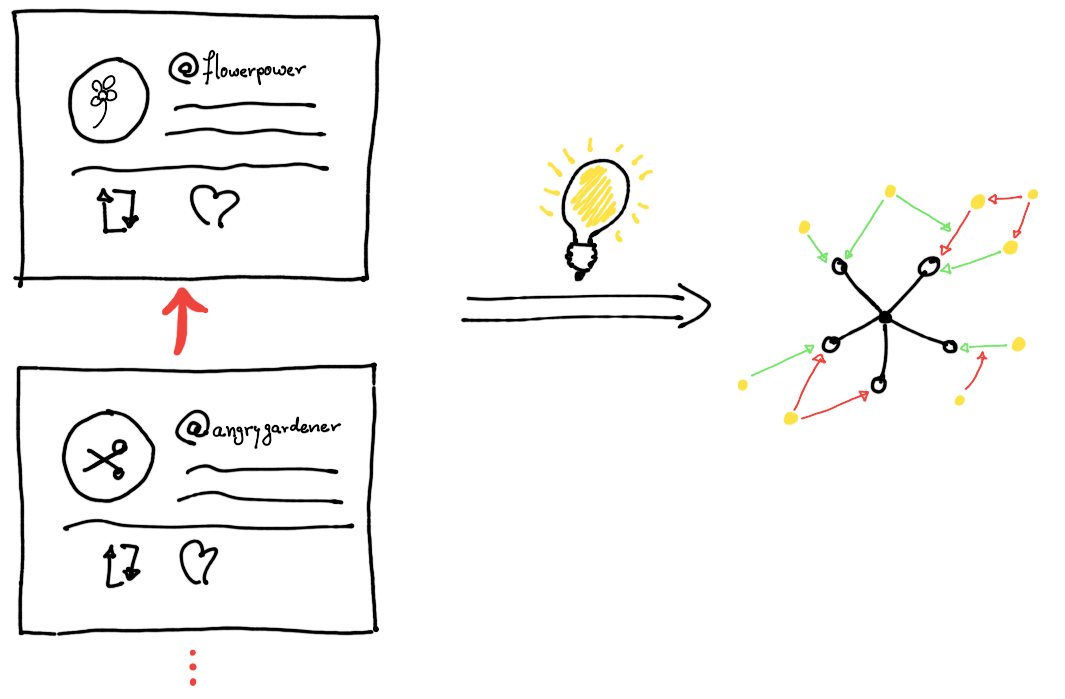 @flowerpower
@angrygardener